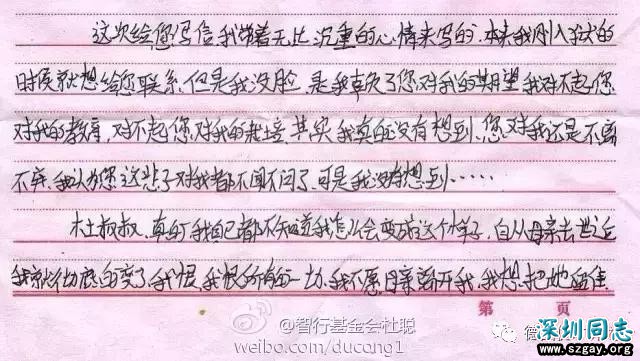 这次给您写信我带着无比沉重的心情来写的.本来我刚入狱的
时候就想给您联系.但是我没脸.是我辜负了您对我的期望我对不起您
对我的教育,对不起您对我的栽培.其实我真的没有想到.您对我还是不离
不弃.我以为您这悲子对我都不闻不问了.可是我没有想到……
杜叔叔.真的我自己都不知道我怎么会变成这个样子,自从母亲去世过
我就彻底的变了.我恨.我恨所有的一切.我不愿母亲离开我.我想把她
第 页
@智行基金会杜聪
weibo.com/ducong1
深圳同志
www.szgay.org